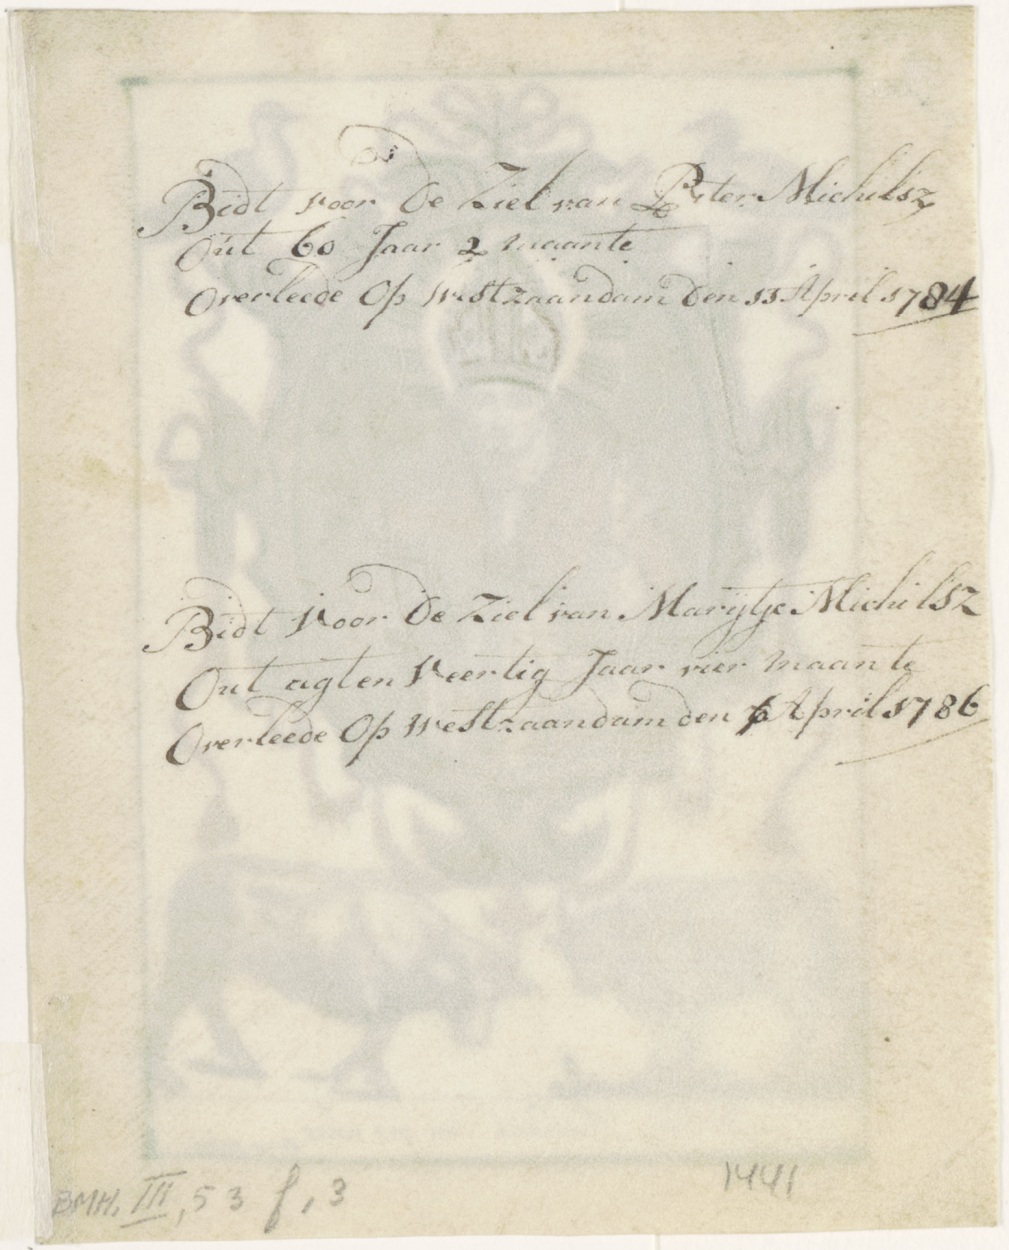 Bidt voor de Ziel van Pieter Michilsz
Out 60 Jaar 2 maante
Overleede Op Westzaandam den 13 April 1784
Bidt Voor de Ziel van Marijtje Michilsz
Out agten Veertig Jaar vier maante
Overleede Op Westzaandam den 6 April 1786
BMH. III, 53 f, 3
1441